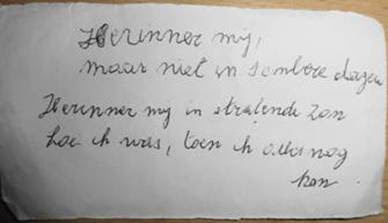 Herinner mij,
maar niet in sombere dagen
Herinner mij in stralende zon
hoe ik was, toen ik alles nog
kon.